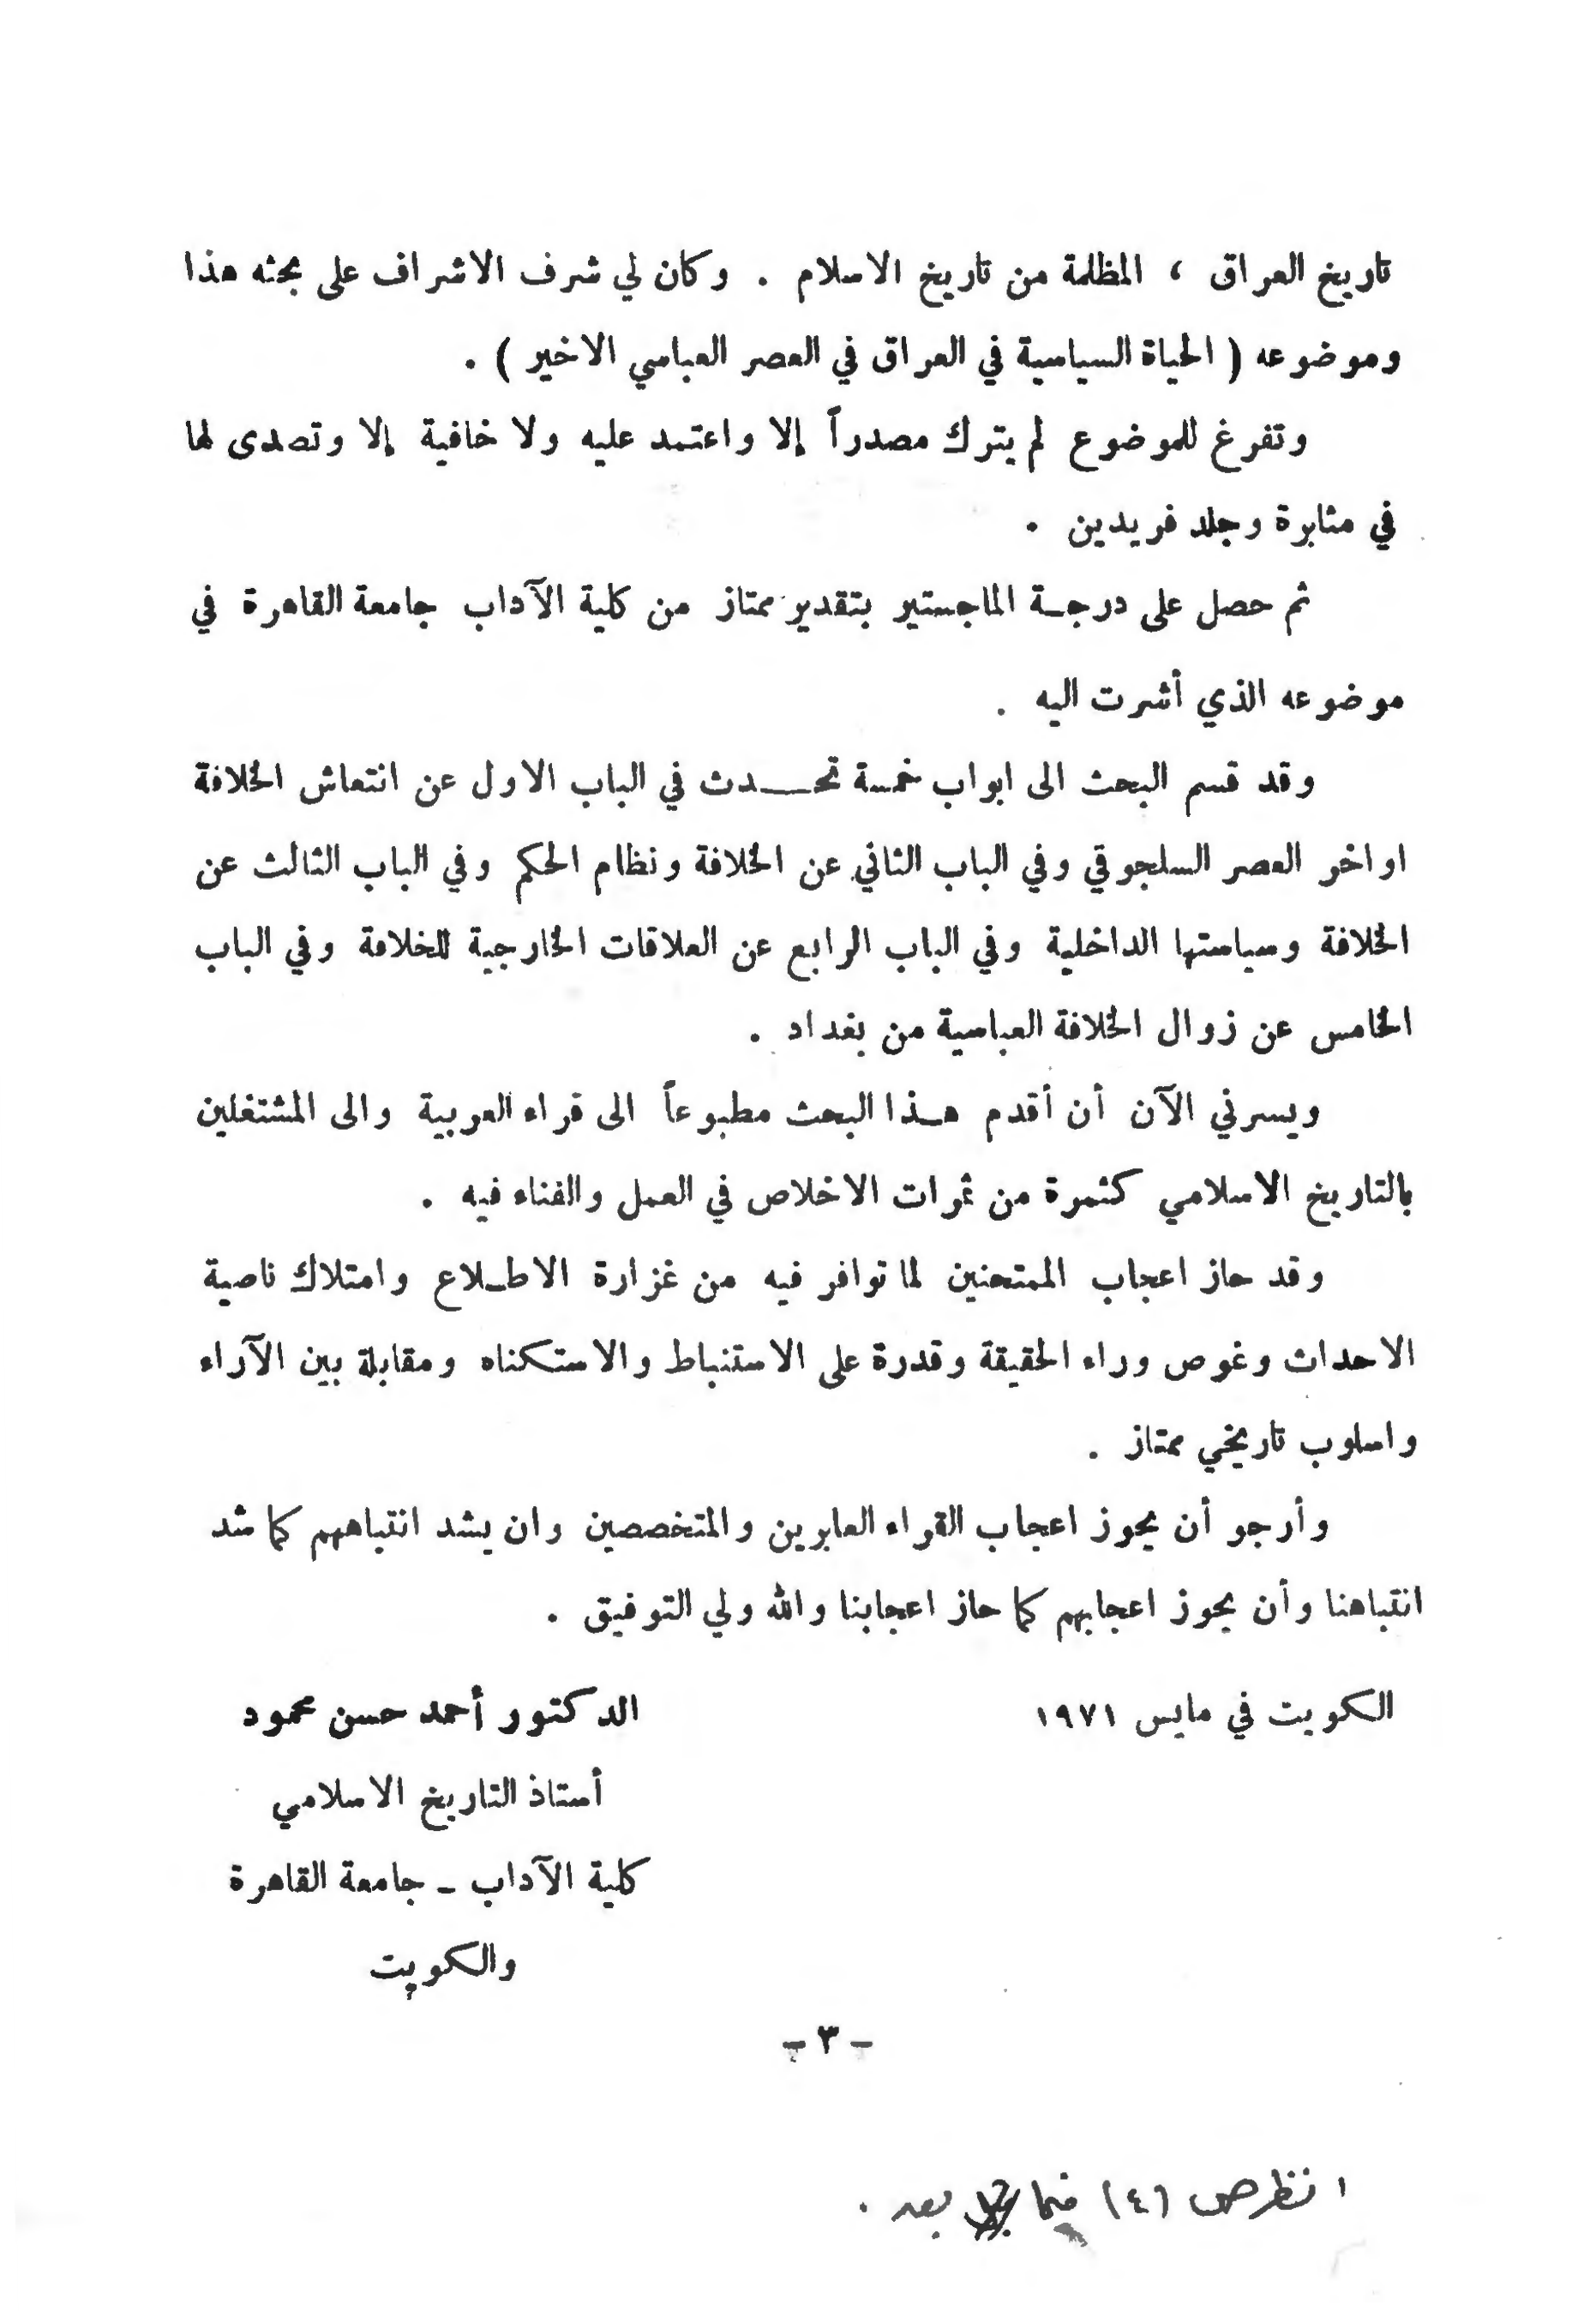 تاريخ العراق ، المظلمة من تاريخ الاسلام . وكان لي شرف الاشراف على بحثه هذا
وموضوعه ( الحياة السياسية في العراق في العصر العباسي الاخير ) .
وتفرغ للموضوع لم يترك مصدراً إلا واعتمد عليه ولا خافية إلا وتصدى لها
في مثابرة وجلد فريدين .
ثم حصل على درجة الماجستير بتقدير ممتاز من كلية الآداب جامعة القاهرة في
موضوعه الذي أشرت اليه .
وقد قسم البحث الى ابواب خمسة تحدث في الباب الاول عن انتعاش الخلافة
اواخر العصر السلجوقي وفي الباب الثاني عن الخلافة ونظام الحكم وفي الباب الثالث عن
الخلافة وسياستها الداخلية وفي الباب الرابع عن العلاقات الخارجية للخلافة وفي الباب
الخامس عن زوال الخلافة العباسية من بغداد .
ويسرني الآن أن أقدم هذا البحث مطبوعاً الى قراء العربية والى المشتغلين
بالتاريخ الاسلامي كثمرة من ثمرات الاخلاص في العمل والفناء فيه .
وقد حاز اعجاب الممتحنين لما توافر فيه من غزارة الاطلاع وامتلاك ناصية
الاحداث وغوص وراء الحقيقة وقدرة على الاستنباط والاستكناه ومقابلة بين الآراء
واسلوب تاريخي ممتاز .
وأرجو أن يحوز اعجاب القراء العابرين والمتخصصين وان يشد انتباههم كما شد
انتباهنا وأن يحوز اعجابهم كما حاز اعجابنا والله ولي التوفيق .
الكويت في مايس ١٩٧١
الدكتور أحمد حسن محمود
أستاذ التاريخ الاسلامي
كلية الآداب - جامعة القاهرة
والكويت
- ٣ -
انظر ص (٤) فيما بعد .